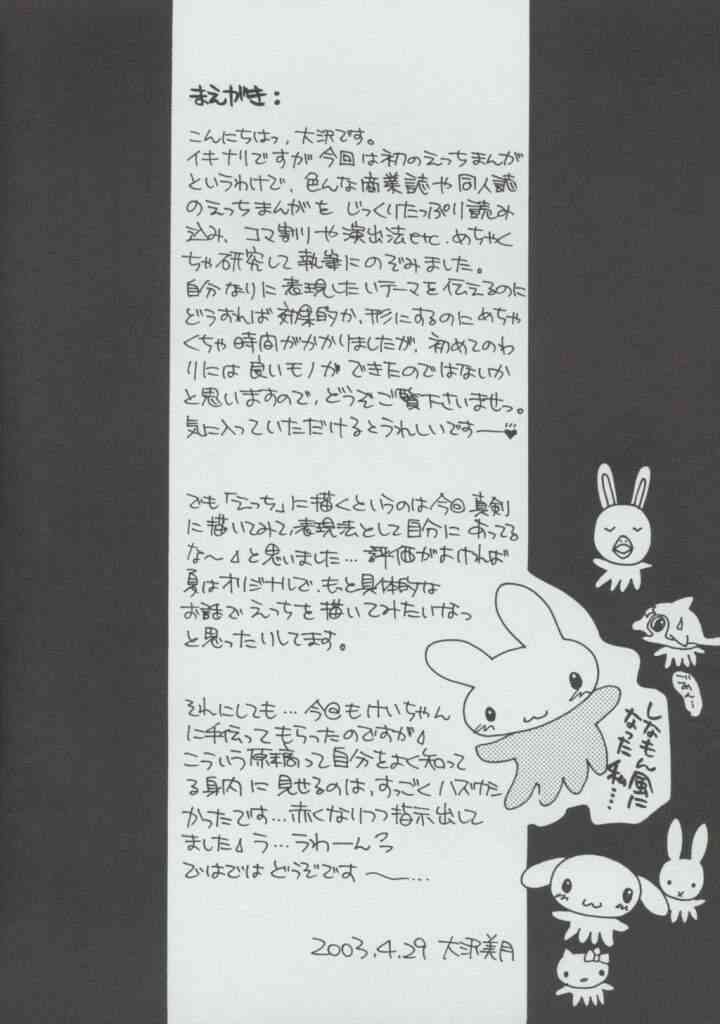 まえがき：
こんにちはっ，大沢です。
イキナリですが今回は初のえっちまんが
というわけで、色んな商業誌や同人誌
のえっちまんがを じっくりたっぷり読み
込み、コマ割りや演出法etc.めちゃく
ちゃ研究して執筆にのぞみました。
自分なりに表現したいテーマを伝えるのに
どうすれば効果的か、形にするのにめちゃ
くちゃ時間がかかりましたが、初めてのわ
りには良いモノができたのではないか
と思いますので、どうぞご覧下さいませっ。
気に入っていただけるとうれしいですー♥
でも「えっち」に描くというのは今回真剣
に描いてみて、表現法として自分にあってる
な〜♪と思いました…評価がよければ
夏はオリジナルで、もっと具体的な
お話でえっちを描いてみたいなっ
と思ったりしてます。
それにしても…今回もけいちゃん
に手伝ってもらったのですが♪
こういう原稿って自分をよく知って
る身内に見せるのは、すっごくハズカし
かったです…赤くなりつつ指示出して
ました♪う…うわーんろ
ではでは どうぞです〜…
2003.4.29 大沢美月
ごめん…
しなもん風に
なった私…